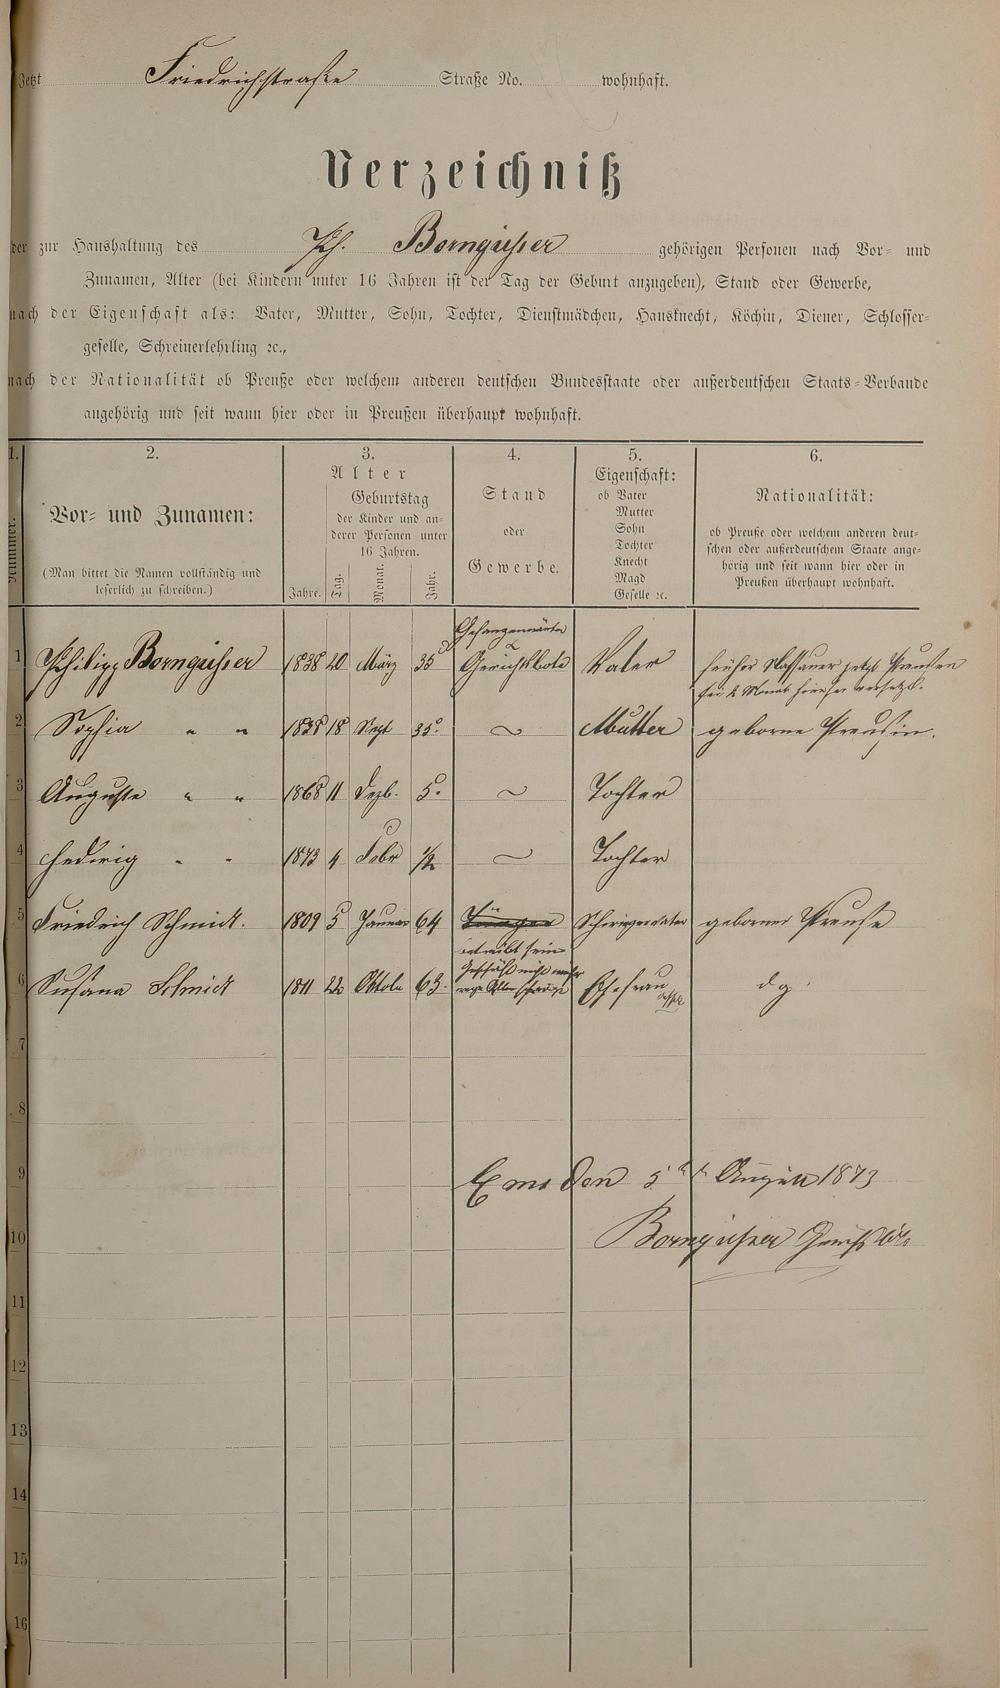 Jetzt Friedrichstraße Straße No. wohnhaft.
Verzeichniß
der zur Haushaltung des Ph. Borngießer gehörigen Personen nach Vor- und
Zunamen, Alter (bei Kindern unter 16 Jahren ist der Tag der Geburt anzugeben), Stand oder Gewerbe,
nach der Eigenschaft als: Vater, Mutter, Sohn, Tochter, Dienstmädchen, Hausknecht, Köchin, Diener, Schlosser-
geselle, Schreinerlehrling ꝛc.,
nach der Nationalität ob Preuße oder welchem anderen deutschen Bundesstaate oder außerdeutschen Staats-Verbande
angehörig und seit wann hier oder in Preußen überhaupt wohnhaft.
1. 2. 3. 4. 5. 6.
Nummer.
Vor- und Zunamen:
(Man bittet die Namen vollständig und
leserlich zu schreiben.)
Alter
Geburtstag
der Kinder und an-
derer Personen unter
16 Jahren.
Jahre. Tag. Monat. Jahr.
Stand
oder
Gewerbe.
Eigenschaft:
ob Vater
Mutter
Sohn
Tochter
Knecht
Magd
Geselle ꝛc.
Nationalität:
ob Preuße oder welchem anderen deut-
schen oder außerdeutschem Staate ange-
hörig und seit wann hier oder in
Preußen überhaupt wohnhaft.
Gefangenwärter
1 Philipp Borngießer 1838 20 März 35 Gerichtsbote Vater früher Nassauer jetzt Preußen
sei 2 Monat hierher versetzt.
2 Sophia " " 1838 18 Sept 35. ~ Mutter geborne Preußin.
3 Auguste " " 1868 11 Dezb. 5. ~ Tochter
4 Hedwig " " 1873 4 Febr 1/2 ~ Tochter
5 Friedrich Schmidt. 1809 5 Januar 64 Schwiegervater geborner Preuße
betreibt sein
Geschäft nicht mehr
6 Susana Schmidt 1811 22 Oktob 63. wegen Alter Ehefrau d g.
7
8
9 Ems den 5ten August 1873
10 Borngießer Gerichtsbote
11
12
13
14
15
16